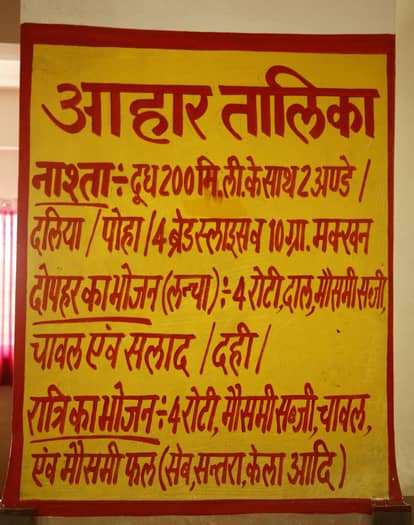 आहार तालिका
नाश्ता ÷ दूध 200 मि.ली. के साथ 2 अण्डे /
दलिया / पोहा / 4 ब्रेड स्लाइस व 10 ग्रा. मक्खन
दोपहर का भोजन (लन्चा) ÷ 4 रोटी, दाल, मौसमी सब्जी,
चावल एंव सलाद / दही /
रात्रि का भोजन ÷ 4 रोटी, मौसमी सब्जी, चावल,
एंव मौसमी फल (सेब, सन्तरा, केला आदि)